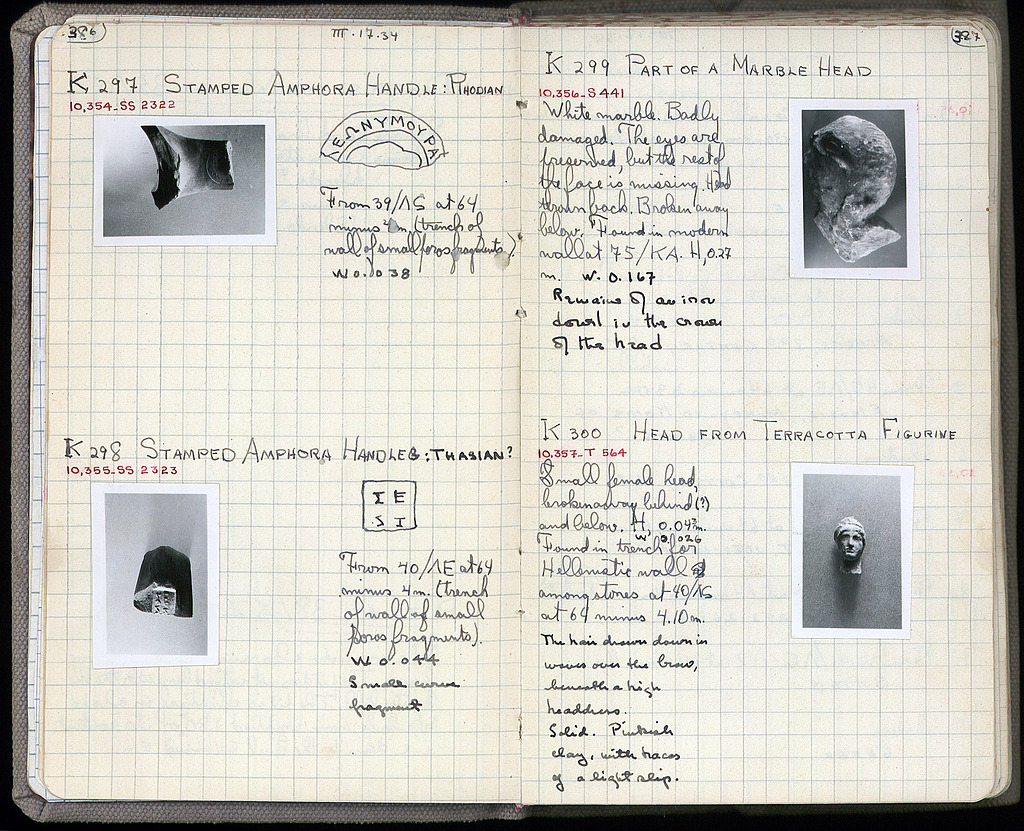 386
III·17·34
K 297 STAMPED AMPHORA HANDLE: RHODIAN
10,354-SS 2322
ΛΕΩΝΥΜΟΥΡΑ
From 39/ΛS at 64
minus m. (trench of
wall of small poros fragments.)
W 0.038
K 298 STAMPED AMPHORA HANDLE: THASIAN?
10,355-SS 2323
From 40/ΛE at 64
minus 4 m. (trench
of wall of small
poros fragments).
W 0.044
Small curve
fragment
387
K 299 PART OF A MARBLE HEAD
10,356-S 441
White marble. Badly
damaged. The eyes are
preserved, but the rest of
the face is missing. Head
thrown back. Broken away
below. Found in modern
wall at 75/KA. H, 0.27
m. W. 0.167
Remains of an iron
dowel in the crown
of the head
K 300 HEAD FROM TERRACOTTA FIGURINE
10,357-T 564
Small female head,
broken away behind (?)
and below. H, 0.043 m.
W 0.026
Found in trench for
Hellenistic wall
among stones at 40/ΛS
at 64 minus 4.10 m.
The hair drawn down in
waves over the brow,
beneath a high
headdress.
Solid. Pinkish
clay, with traces
of a light slip.